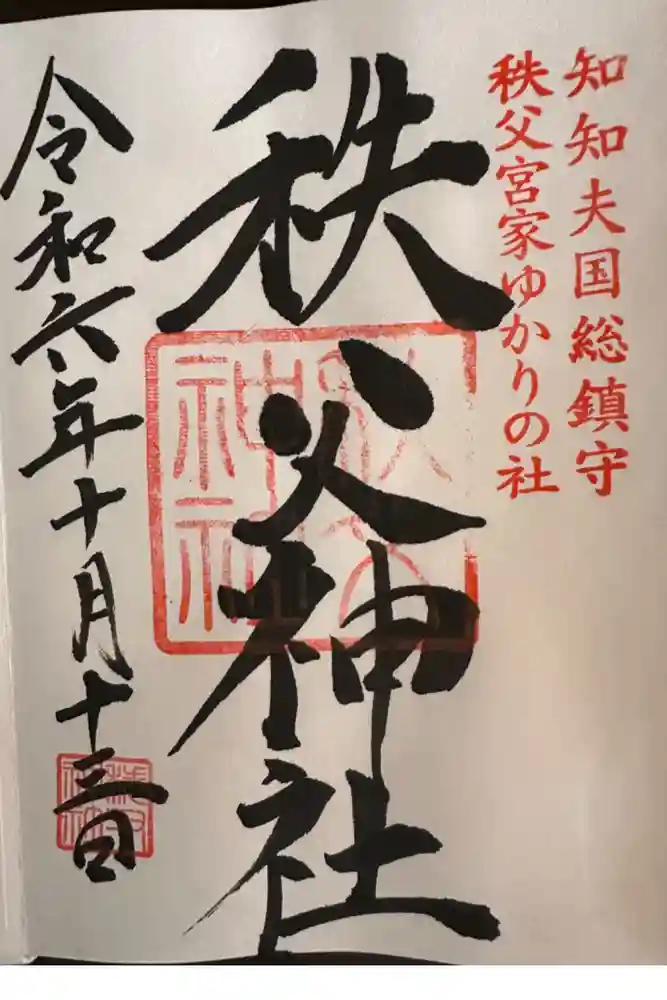 知知夫国総鎮守
秩父宮家ゆかりの社
秩父神社
令和六年十月十三日